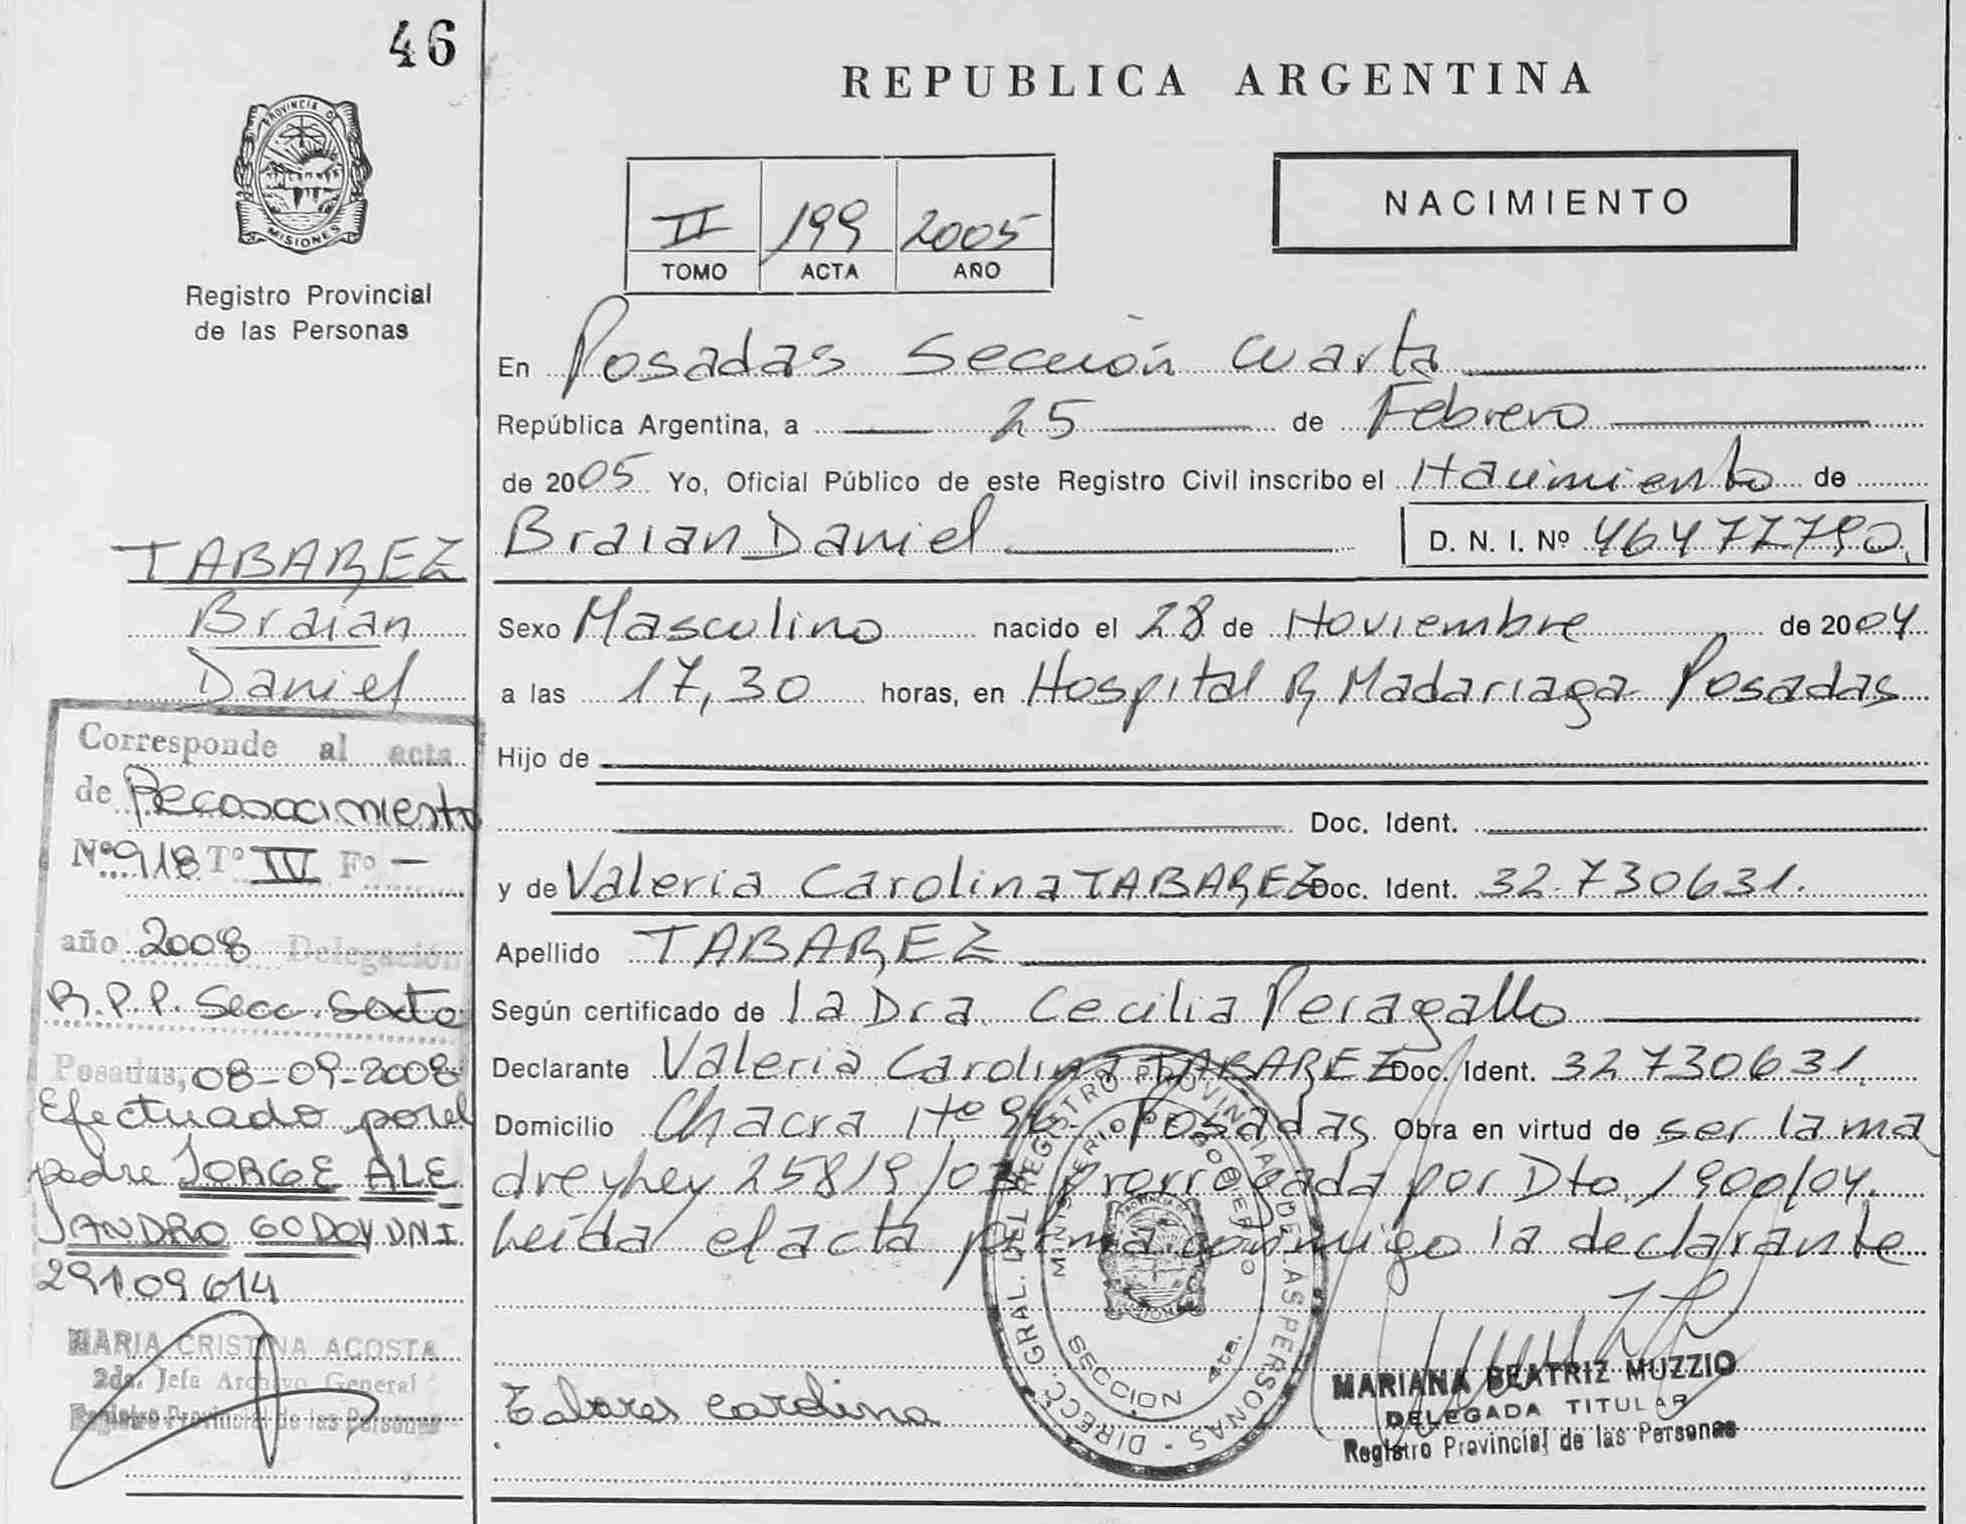 46
PROVINCIA DE
MISIONES
Registro Provincial
de las Personas
TABAREZ
Braian
Daniel
Corresponde al acta
de Reconocimiento
Nº 918 Tº IV Fº —
año 2008 Delegación
R.P.P. Secc. Sexta
Posadas, 08-09-2008
Efectuado por el
padre JORGE ALE
JANDRO GODOY DNI.
29109614
MARIA CRISTINA ACOSTA
2da. Jefa Archivo General
Registro Provincial de las Personas
REPUBLICA ARGENTINA
II 199 2005
TOMO ACTA AÑO
NACIMIENTO
En Posadas Sección Cuarta
República Argentina, a 25 de Febrero
de 2005 Yo, Oficial Público de este Registro Civil inscribo el Nacimiento de
Braian Daniel D. N. I. Nº 46477790.
Sexo Masculino nacido el 28 de Noviembre de 2004
a las 17,30 horas, en Hospital R Madariaga Posadas
Hijo de
Doc. Ident.
y de Valeria Carolina TABAREZ Doc. Ident. 32.730631.
Apellido TABAREZ
Según certificado de la Dra. Cecilia Peragallo
Declarante Valeria Carolina TABAREZ Doc. Ident. 32730631.
Domicilio Chacra Nº 96- Posadas Obra en virtud de ser la ma
dre y ley 25819/03 Prorrogada por Dto. 1900/04.
Leída el acta firma conmigo la declarante
DIRECC. GRAL. DEL REGISTRO PROVINCIAL DE LAS PERSONAS -
MINISTERIO DE GOBIERNO
SECCION 4ta.
Tabares carolina
MARIANA BEATRIZ MUZZIO
DELEGADA TITULAR
Registro Provincial de las Personas